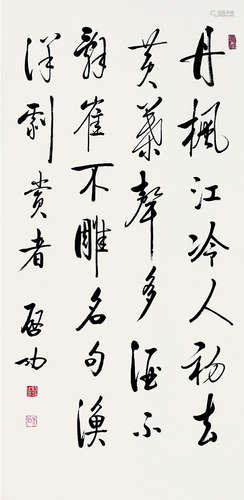 丹楓江冷人初去
黃葉聲多酒不
辭崔不雕名句漁
洋劇賞者 啟功